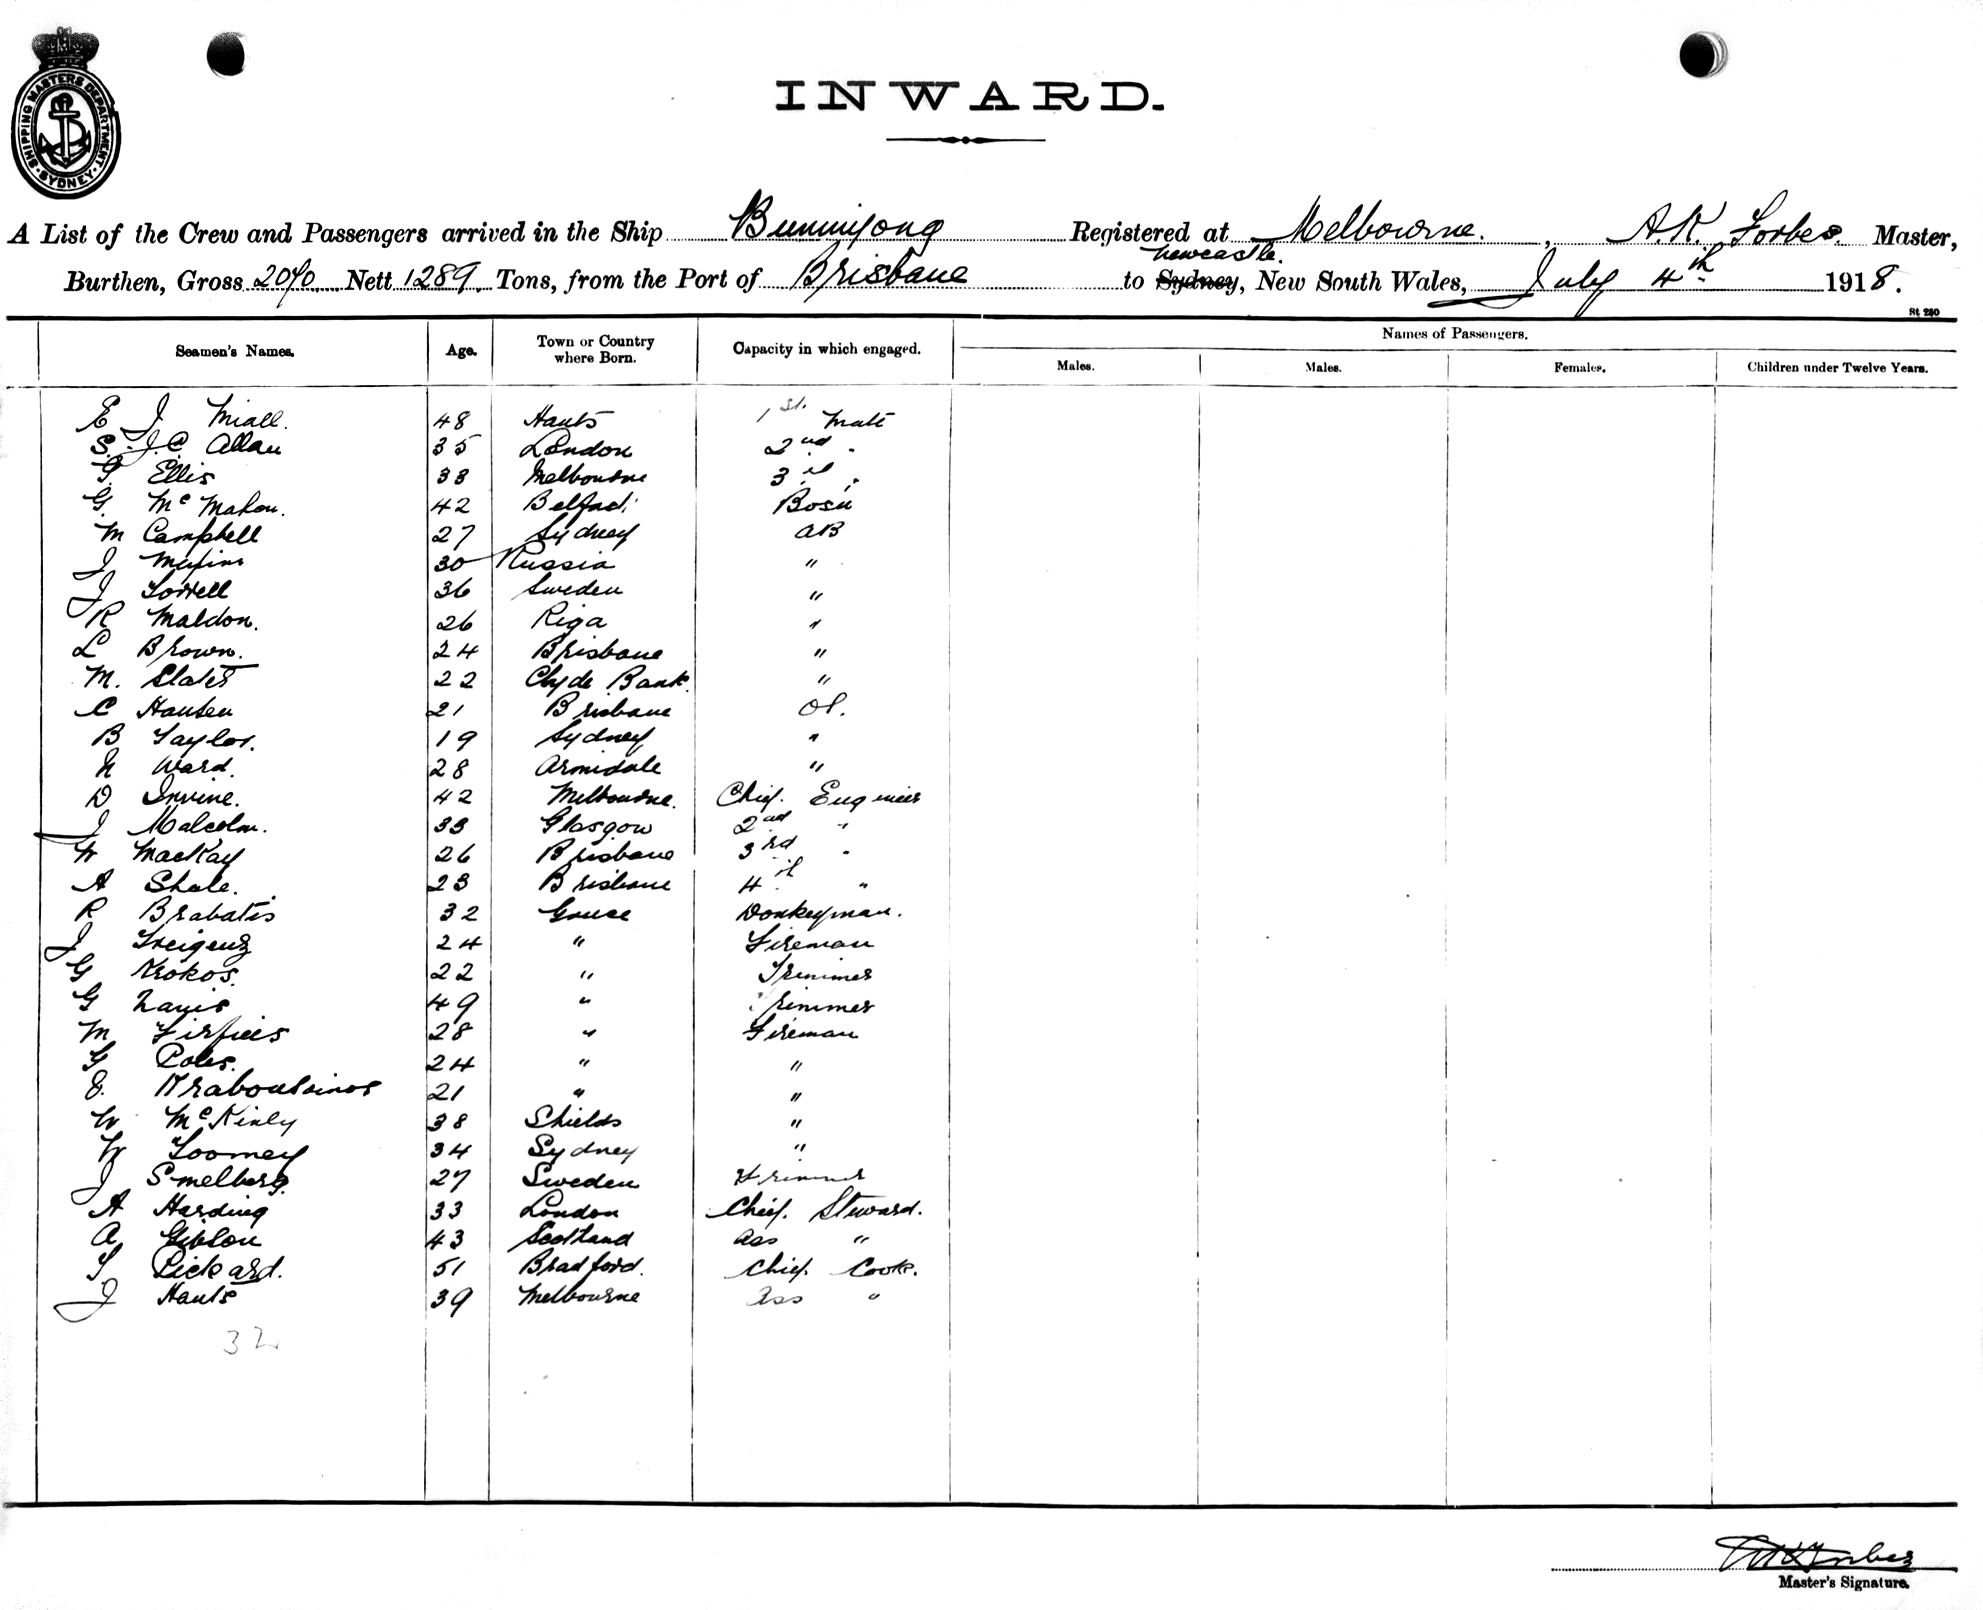 SHIPPING MASTERS DEPARTMENT · SYDNEY ·
INWARD.
A List of the Crew and Passengers arrived in the Ship Buninyong Registered at Melbourne. , A. K. Forbes. Master,
Newcastle.
Burthen, Gross 2070 Nett 1289 Tons, from the Port of Brisbane to Sydney, New South Wales, July 4th 1918.
St 280
Seamen's Names. Age. Town or Country where Born. Capacity in which engaged. Names of Passengers.
Males. Males. Females. Children under Twelve Years.
E J Miall. 48 Hants 1st. Mate
S. J. C. Allan 35 London 2nd "
Ellis 33 Melbourne 3rd "
G. McMahon. 42 Belfast Bosn
M Campbell 27 Sydney AB
J 30 Russia "
J Sorrell 36 Sweden "
R Maldon. 26 Riga "
L Brown. 24 Brisbane "
M. Slater 22 Clyde Bank. "
C Hansen 21 Brisbane OS.
B Taylor. 19 Sydney "
N Ward. 28 Armidale "
D Irvine. 42 Melbourne. Chief. Engineer
J Malcolm. 33 Glasgow 2nd "
W MacKay 26 Brisbane 3rd "
A Shale. 23 Brisbane 4th "
R Brabatis 32 Greece Donkeyman.
J 24 " Fireman
G Krokos. 22 " Trimmer
G 49 " Trimmer
M 28 " Fireman
G Poles. 24 " "
Kraboutsinos 21 " "
W McKinly 38 Shields "
W Toomey 34 Sydney "
J Smelberg. 27 Sweden Trimmer
A Harding 33 London Chief. Steward.
A Gibson 43 Scotland Ass "
S Pickard. 51 Bradford. Chief. Cook.
J Hants 39 Melbourne Ass "
32
A K Forbes
Master's Signature.